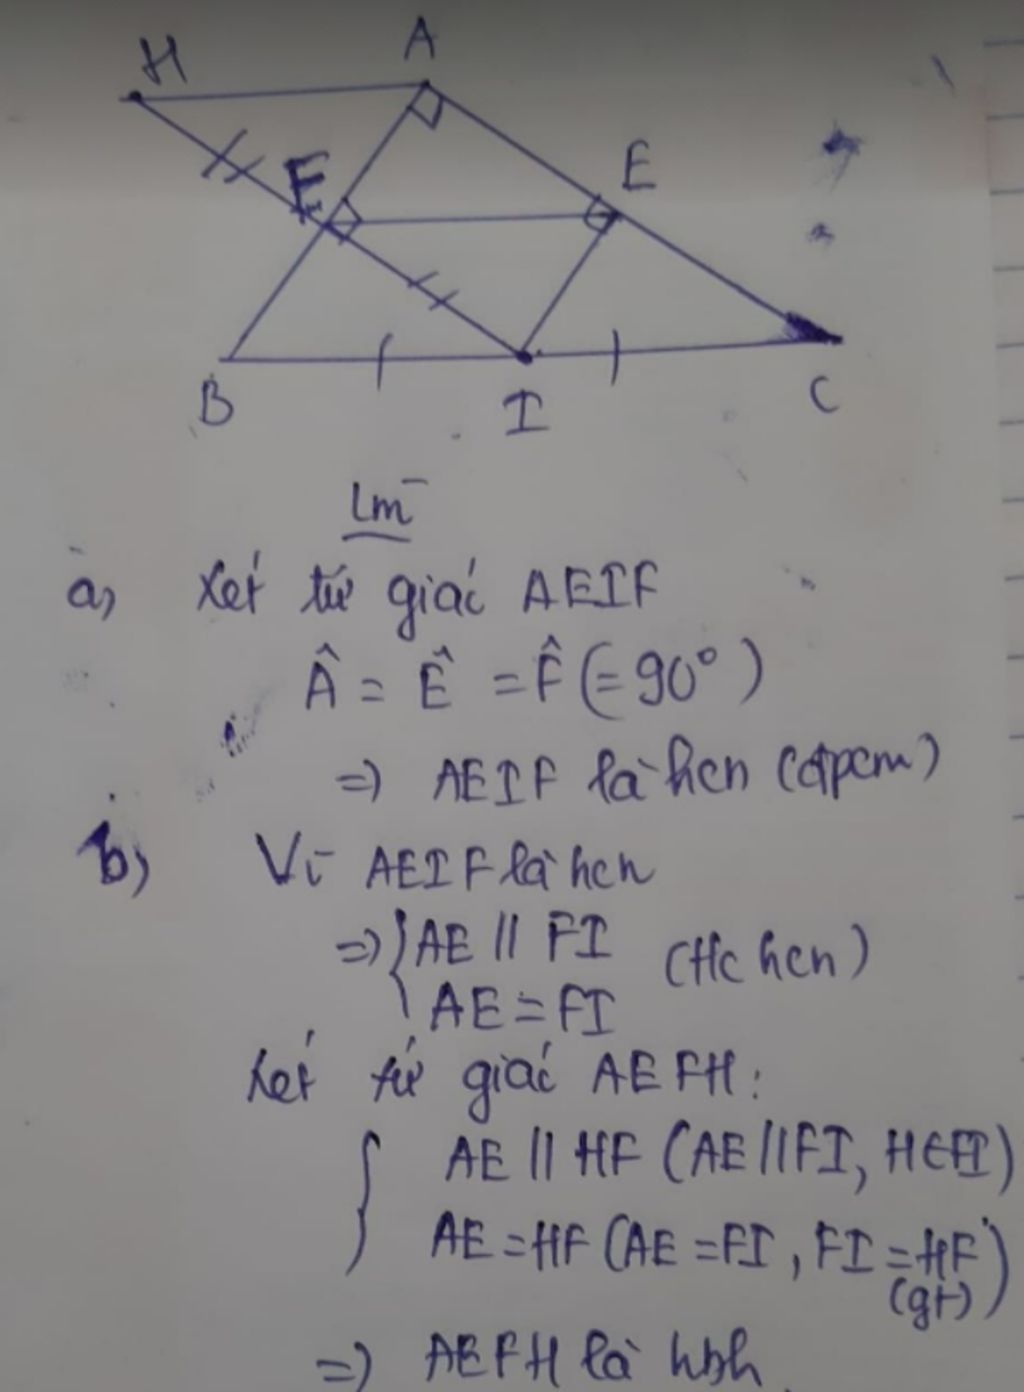 H
A
E
F
B
I
C
Lm
a, Xét tứ giác AEIF
Â = Ê = F̂ (= 90°)
=> AEIF là hcn (đpcm)
b) Vì AEIF là hcn
=> { AE // FI (tc hcn)
AE = FI
Xét tứ giác AEFH:
{ AE // HF (AE // FI, H ∈ FI)
AE = HF (AE = FI, FI = HF)
(gt)
=> AEFH là hbh